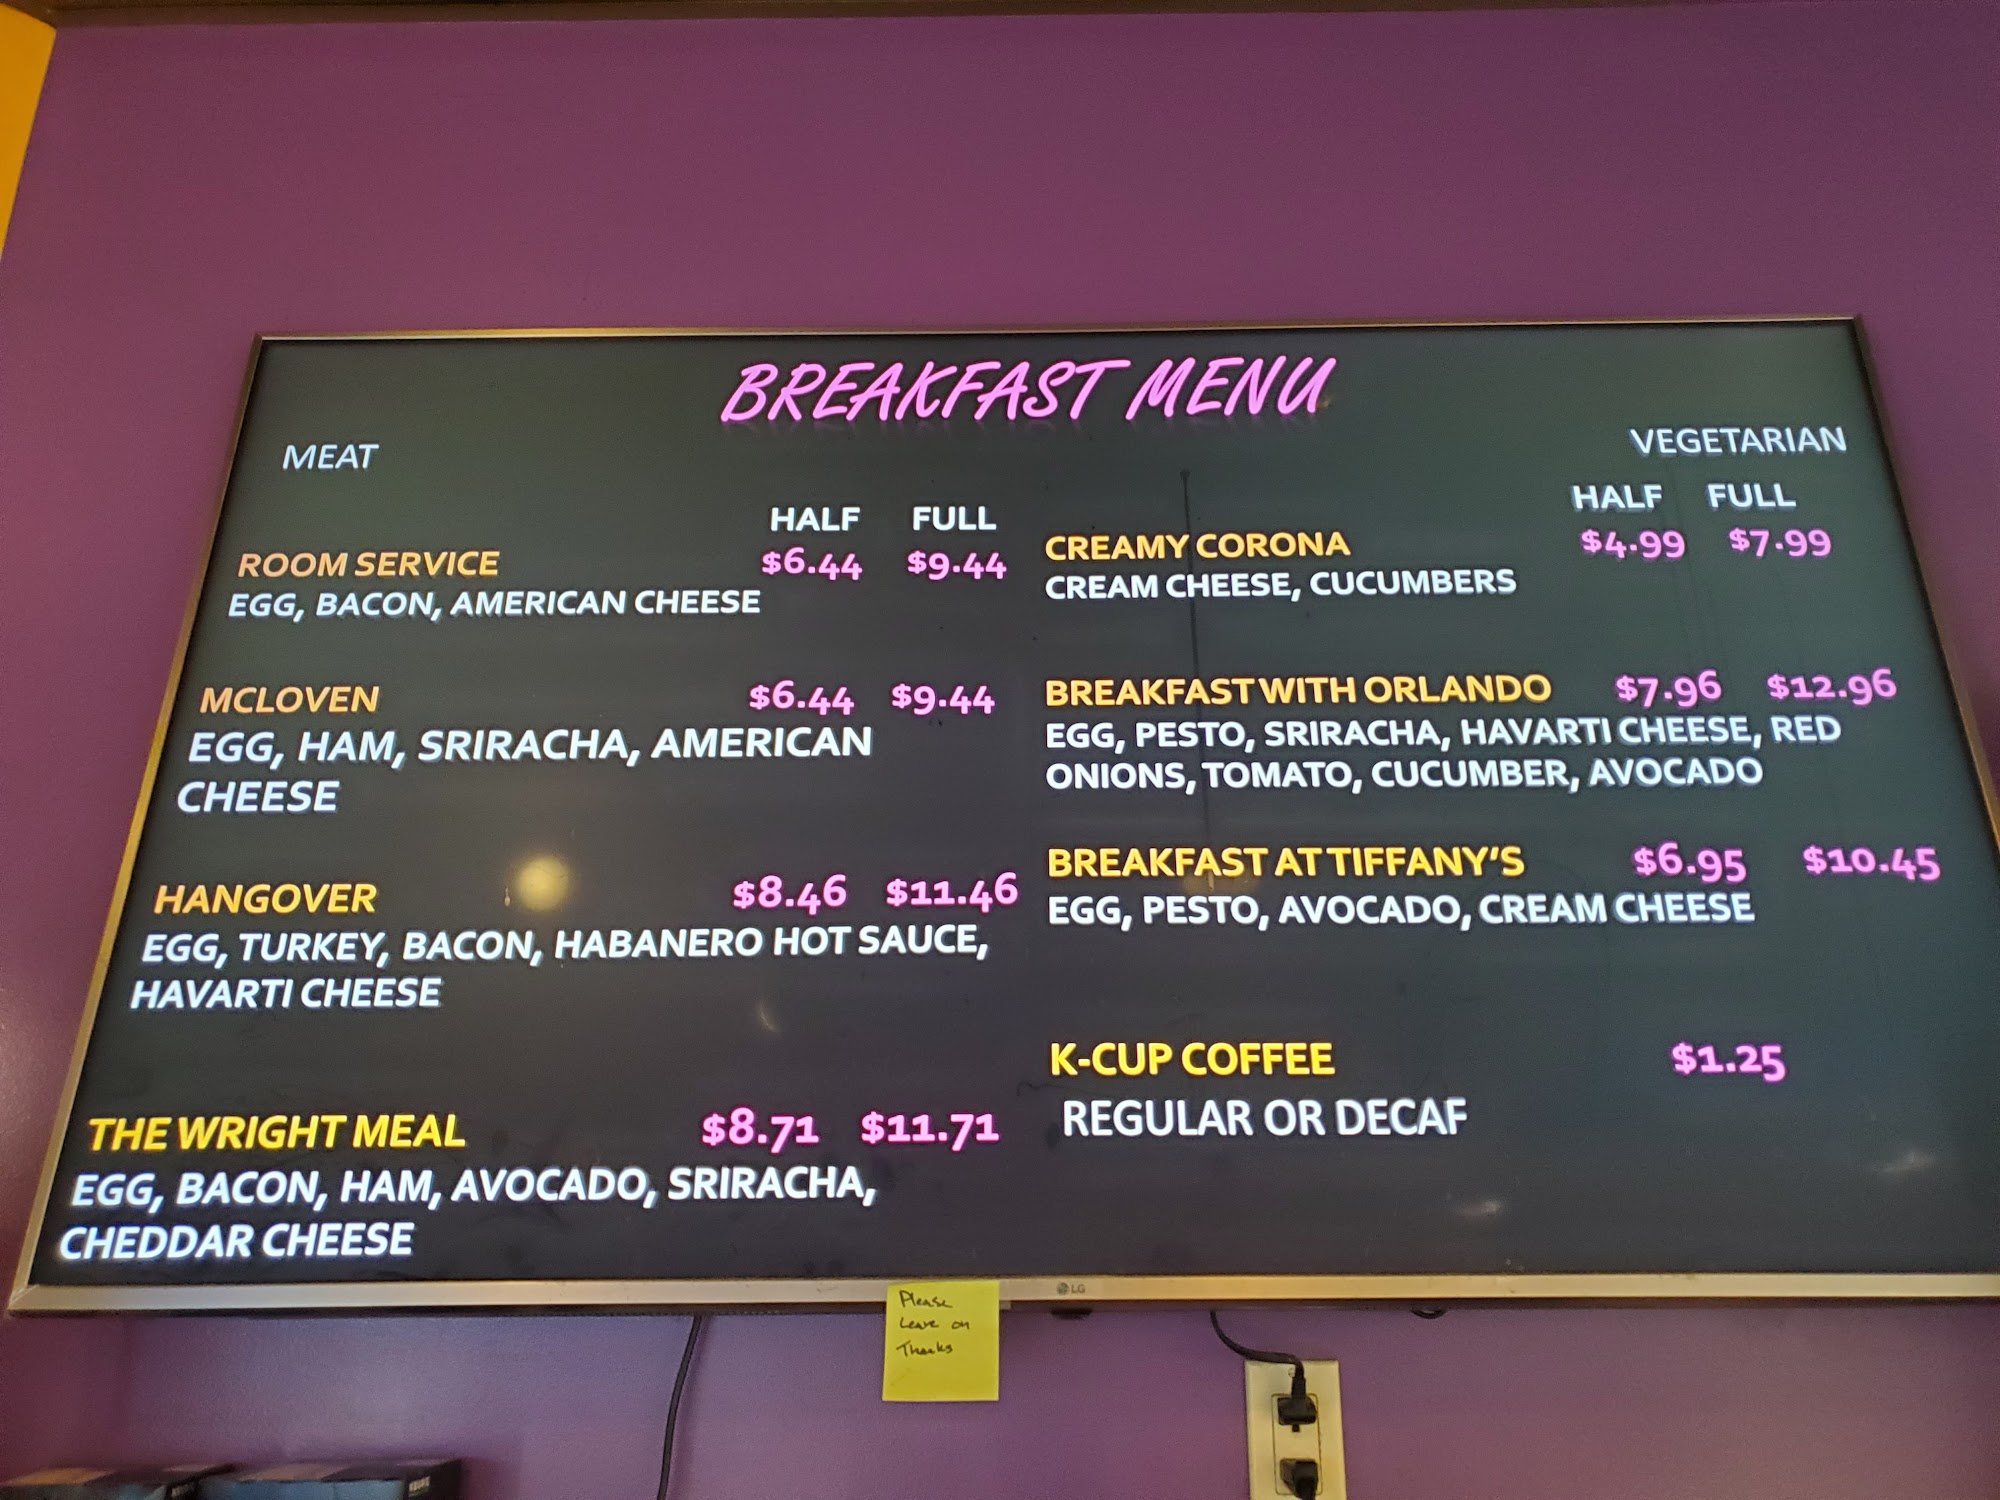 BREAKFAST MENU
MEAT
HALF FULL
ROOM SERVICE $6.44 $9.44
EGG, BACON, AMERICAN CHEESE
MCLOVEN $6.44 $9.44
EGG, HAM, SRIRACHA, AMERICAN
CHEESE
HANGOVER $8.46 $11.46
EGG, TURKEY, BACON, HABANERO HOT SAUCE,
HAVARTI CHEESE
THE WRIGHT MEAL $8.71 $11.71
EGG, BACON, HAM, AVOCADO, SRIRACHA,
CHEDDAR CHEESE
VEGETARIAN
HALF FULL
CREAMY CORONA $4.99 $7.99
CREAM CHEESE, CUCUMBERS
BREAKFAST WITH ORLANDO $7.96 $12.96
EGG, PESTO, SRIRACHA, HAVARTI CHEESE, RED
ONIONS, TOMATO, CUCUMBER, AVOCADO
BREAKFAST AT TIFFANY'S $6.95 $10.45
EGG, PESTO, AVOCADO, CREAM CHEESE
K-CUP COFFEE $1.25
REGULAR OR DECAF
LG
Please
Leave on
Thanks